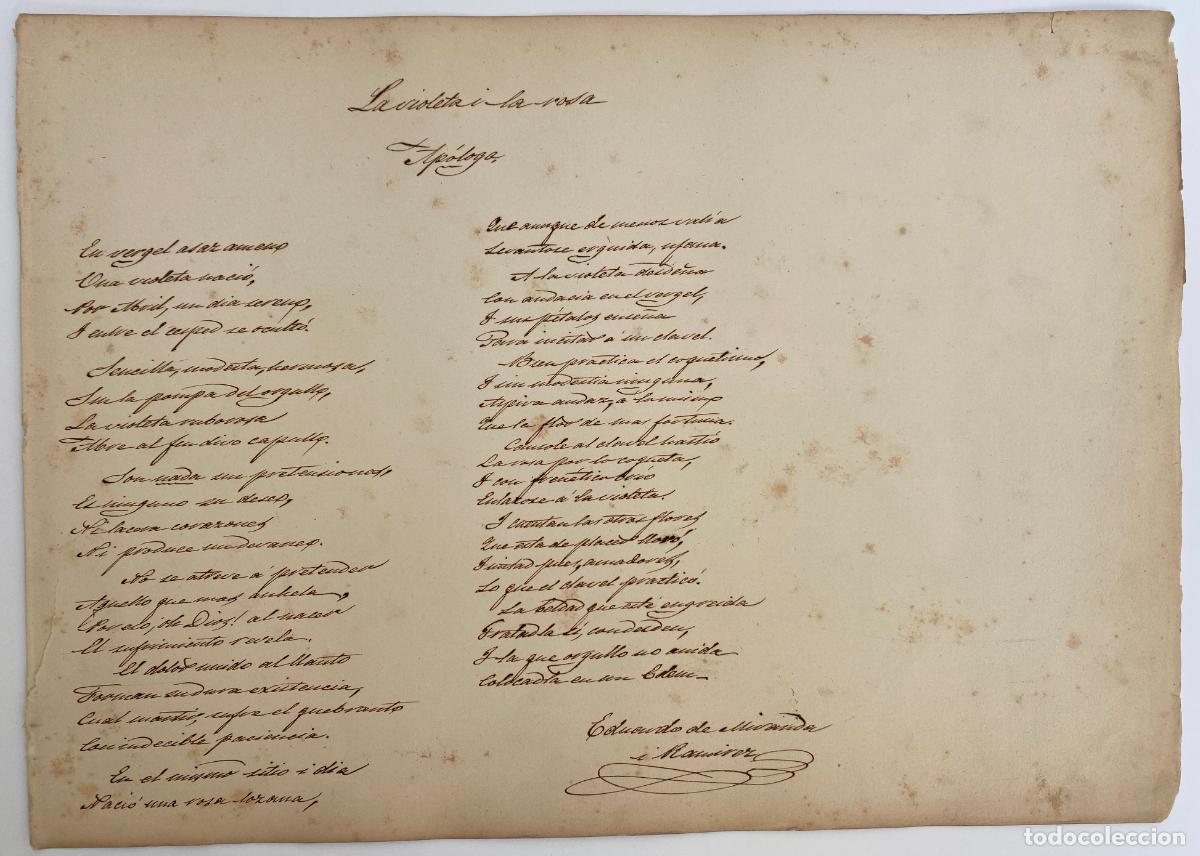 La violeta i la rosa
Apólogo.
En vergel asaz ameno
Una violeta nació,
Por Abril, un dia sereno,
I entre el cesped se ocultó.
Sencilla, modesta, hermosa,
Sin la pompa del orgullo,
La violeta ruborosa
Abre al fin divo capullo.
Son nada sus pretensiones,
Es ninguno su deseo,
Ni lacera corazones
Ni produce un devaneo.
No se atreve á pretender
Aquello que mas anhela,
Por eso, ¡oh Dios! al nacer
El sufrimiento revela.
El dolor unido al llanto
Forman su dura existencia,
Cual martir, sufre el quebranto
Con indecible paciencia.
En el mismo sitio i dia
Nació una rosa lozana,
Que aunque de menos valía
Levantose erguida, ufana.
A la violeta desdeña
Con audacia en el vergel,
I sus pétalos enseña
Para incitar á un clavel.
Bien practica el coquetismo,
I sin modestia ninguna,
Aspira audaz, á lo mismo
Que la flor de mas fortuna.
Cansole al clavel hastio
La rosa por lo coqueta,
I con frenético brío
Enlazose á la violeta.
I cuentan las otras flores
Que esta de placer lloró,
Imitad pues, amadores,
Lo que el clavel practicó.
La beldad que esté engreida
Tratadla sí, con desden,
I la que orgullo no anida
Colocadla en un Edem.
Eduardo de Miranda
i Ramirez
todocoleccion